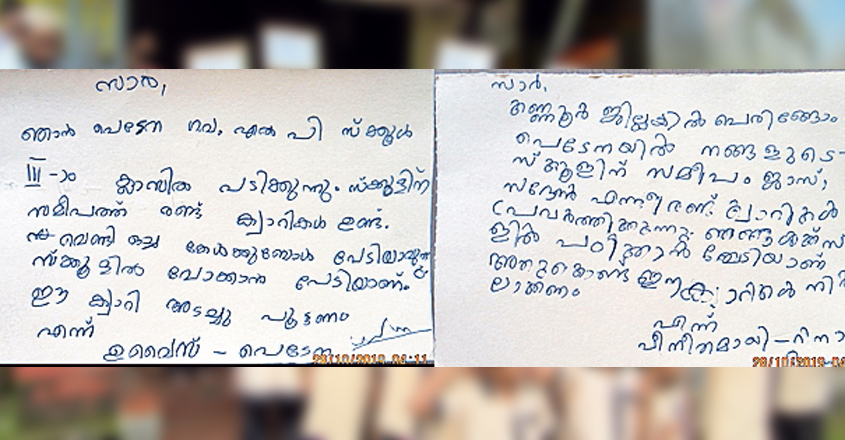 സാർ,
ഞാൻ പെടേന ഗവ, എൽ പി സ്ക്കൂൾ
III-ാം ക്ലാസിൽ പടിക്കുന്നും. സ്ക്കൂളിന്
സമീപത്ത് രണ്ട് ക്വാറികൾ ഉണ്ട്.
വെണ്ടി ഒച്ച കേൾക്കുബോൾ പേടിയാവു
സ്ക്കൂളിൽ പോക്കാൻ പേടിയാണ്.
ഈ ക്വാറി അടച്ചു പൂട്ടണം
എന്ന്
ഉവൈസ് - പെടേന
സാർ,
കണ്ണൂർ ജില്ലയിൽ പെരിങ്ങോം
പെടേനയിൽ നങ്ങളുടെ-
സ്കൂളിന് സമീപം ജാസ്,
എന്നീ രണ്ട് ക്വാറികൾ
പ്രവർത്തിക്കുന്നു. ഞങ്ങൾക്ക് സ്
ളിൽ പഠിക്കാൻ പേടിയാണ്
അതുകൊണ്ട് ഈ ക്വാറികൾ നിർ
ലാക്കണം
എന്ന്
വിനീതമായി - റിനാ